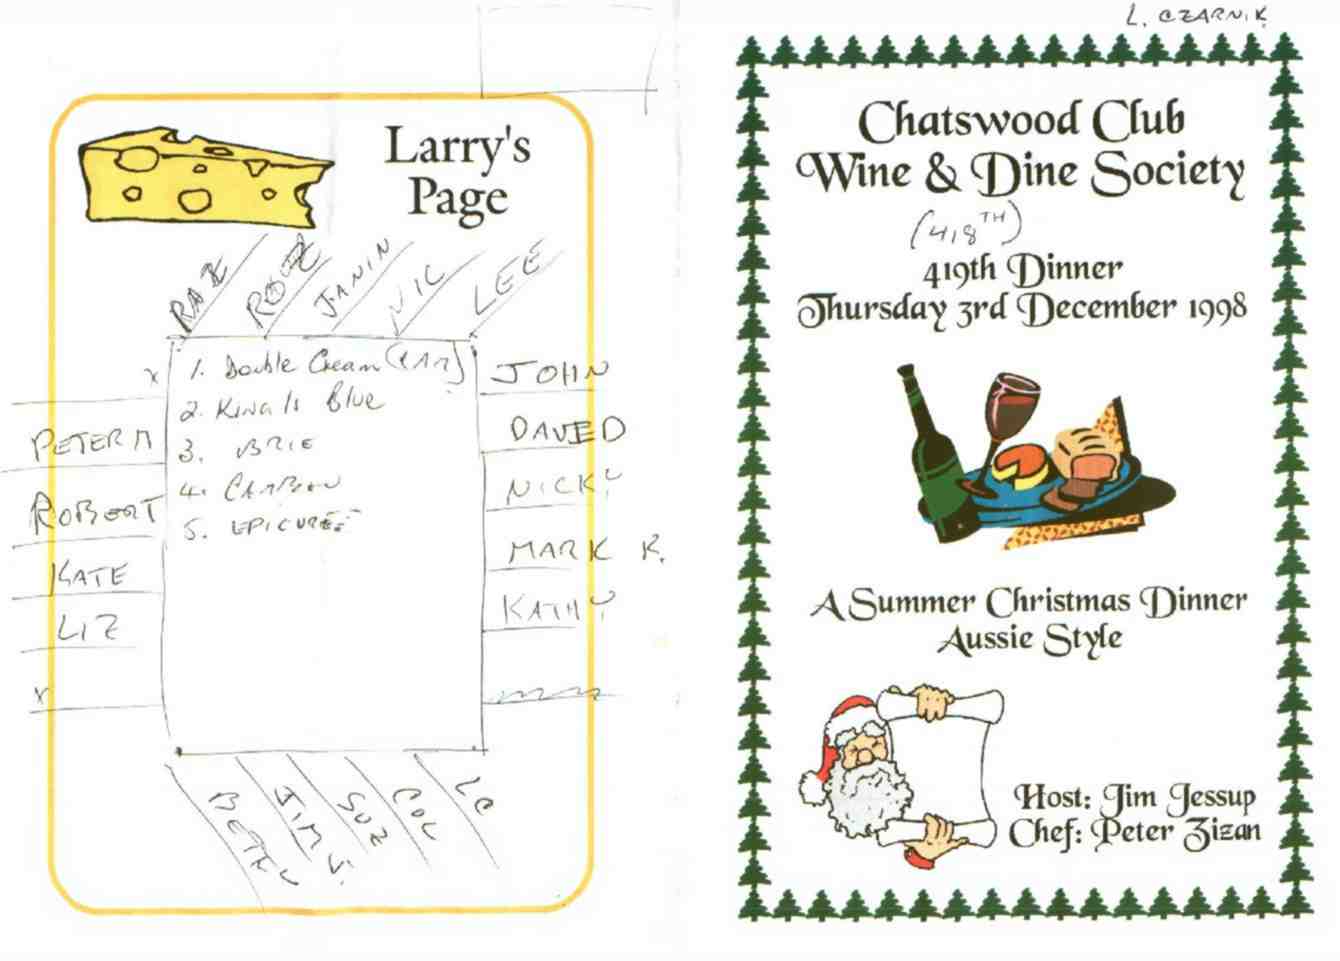 Larry's
Page
ROZ
JANIN
NIC
LEE
x
1. Double Cream
2. King Is Blue
3. BRIE
4.
5. EPICUREE
JOHN
DAVED
NICKY
MARK R.
KATHY
PETER M
ROBERT
KATE
LIZ
x
JIM J.
SUZ
COL
LC
L. CZARNIK
Chatswood Club
Wine & Dine Society
(418TH)
419th Dinner
Thursday 3rd December 1998
A Summer Christmas Dinner
Aussie Style
Host: Jim Jessup
Chef: Peter Zizan